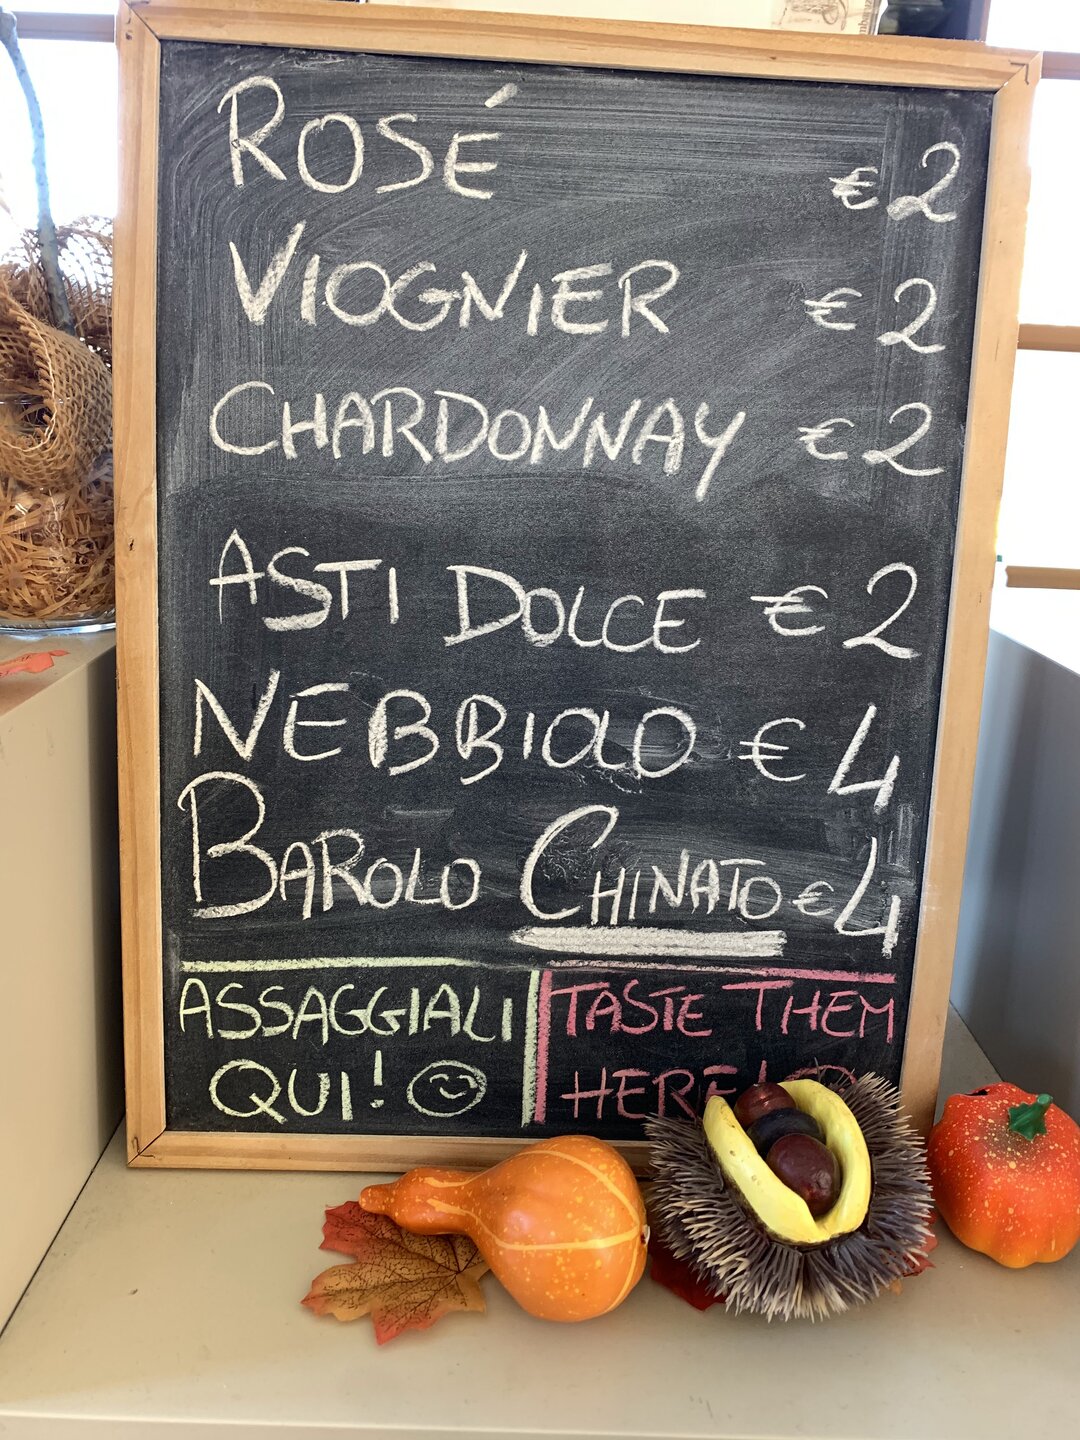 ROSÉ €2
VIOGNIER €2
CHARDONNAY €2
ASTI DOLCE €2
NEBBIOLO €4
BAROLO CHINATO €4
ASSAGGIALI
QUI!
TASTE THEM
HERE!